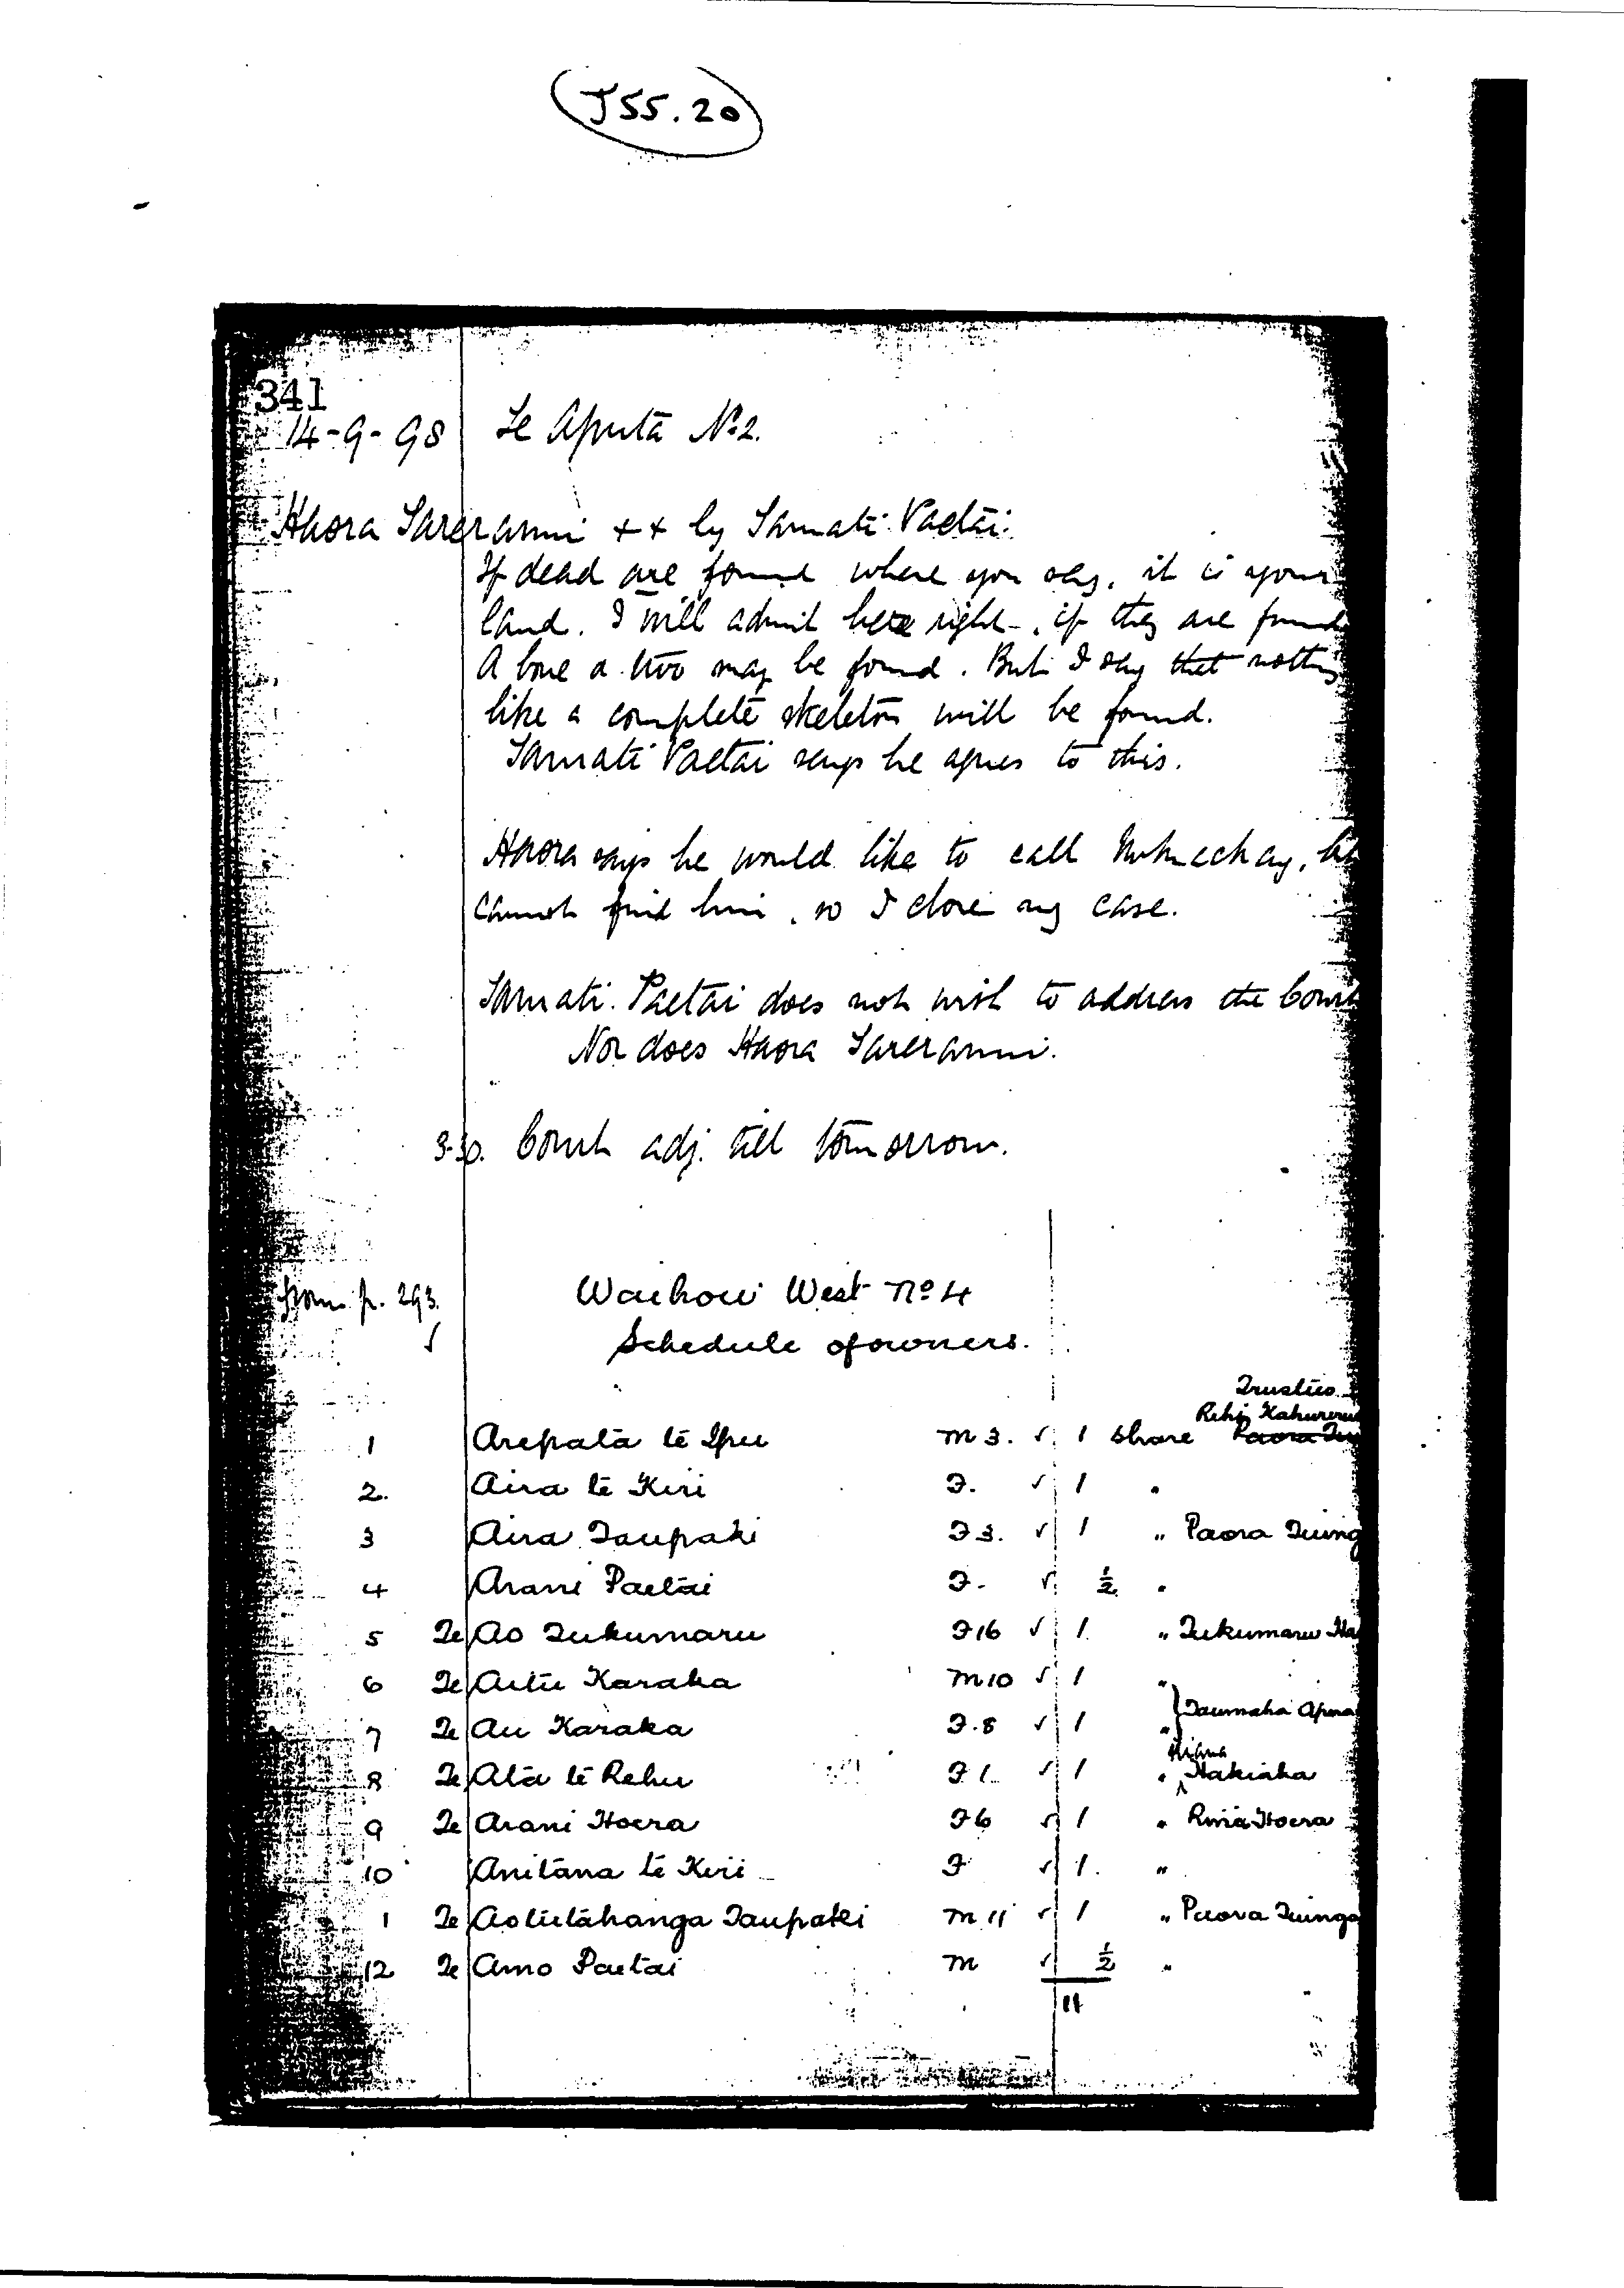 J55.20
341
14-9-98 Te Aputa No 2.
Haora Tareranui ++ by Tamati Paetai.
If dead are found where you say, it is your
land. I will admit here right, if they are found
A bone or two may be found. But I say that nothing
like a complete skeleton will be found.
Tamati Paetai says he agrees to this.
Haora says he would like to call
cannot find him, so I close my case.
Tamati Paetai does not wish to address the Court
Nor does Haora Tareranui.
3-30. Court adj. till tomorrow.
from p. 293. Waihou West No 4
Schedule of owners.
Trustees
Rihi Kahureru
1 Arepata te Ipu m 3. ✓ 1 share Paora Tu
2. Aira te Kiri F. ✓ 1 "
3 Aira Taupaki F 3. ✓ 1 " Paora Tuing
4 Arani Paetai F. ✓ ½ "
5 Te Ao Tukumaru F 16 ✓ 1. " Tukumaru Ha
6 Te Autu Karaka m 10 ✓ 1 "
7 Te Au Karaka F. 8 ✓ 1 " } Taumaha Apera
8 Te Ata te Rehu F 1 ✓ 1 " Hakiaka
9 Te Arani Hoera F 6 ✓ 1 " Riria Hoera
10 Anitana te Kiri F ✓ 1. "
1 Te Aotutahanga Taupaki m 11 ✓ 1 " Paora Tuinga
12 Te Amo Paetai m ✓ ½ "
11